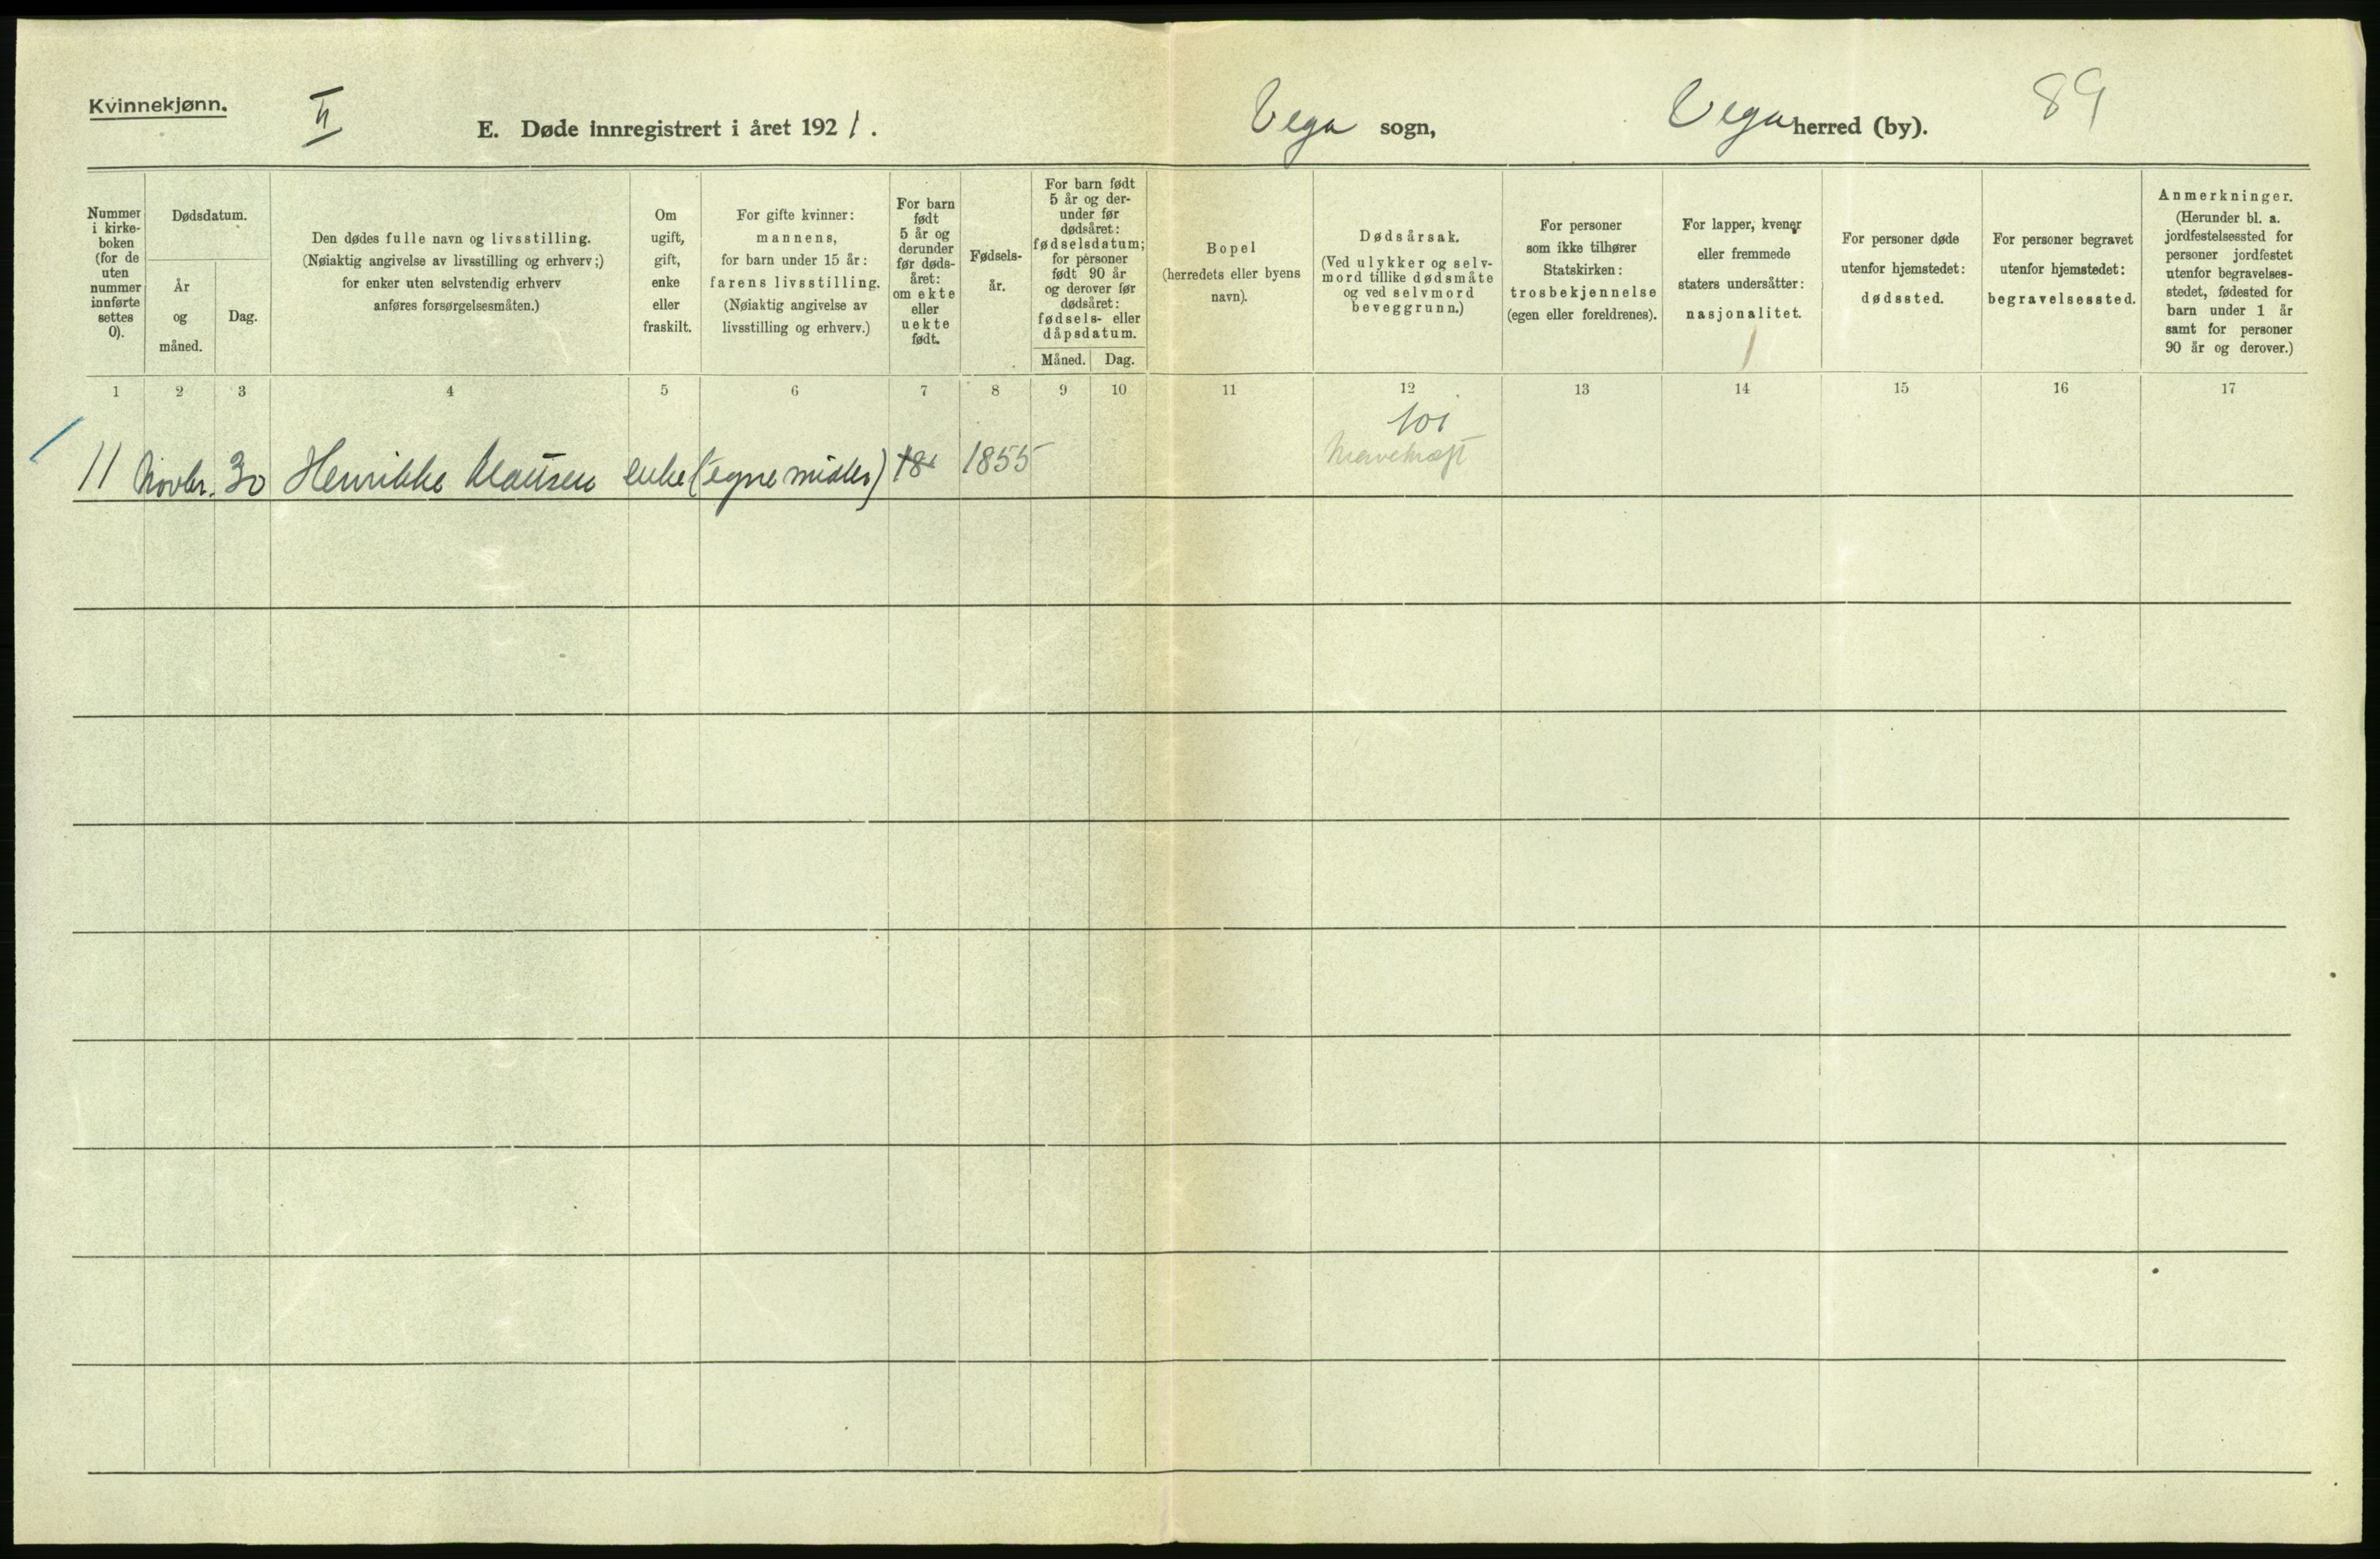 Kvinnekjønn.
II
E. Døde innregistrert i året 1921.
Vega sogn,
Vega herred (by).
89
Nummer
i kirke-
boken
(for de
uten
nummer
innførte
settes
0).
Dødsdatum.
År
og
måned.
Dag.
Den dødes fulle navn og livsstilling.
(Nøiaktig angivelse av livsstilling og erhverv;)
for enker uten selvstendig erhverv
anføres forsørgelsesmåten.)
Om
ugift,
gift,
enke
eller
fraskilt.
For gifte kvinner:
mannens,
for barn under 15 år:
farens livsstilling.
(Nøiaktig angivelse av
livsstilling og erhverv.)
For barn
født
5 år og
derunder
før døds-
året:
om ekte
eller
uekte
født.
Fødsels-
år.
For barn født
5 år og der-
under før
dødsåret:
fødselsdatum;
for personer
født 90 år
og derover før
dødsåret:
fødsels- eller
dåpsdatum.
Måned. Dag.
Bopel
(herredets eller byens
navn).
Dødsårsak.
(Ved ulykker og selv-
mord tillike dødsmåte
og ved selvmord
beveggrunn.)
For personer
som ikke tilhører
Statskirken:
trosbekjennelse
(egen eller foreldrenes).
For lapper, kvener
eller fremmede
staters undersåtter:
nasjonalitet.
For personer døde
utenfor hjemstedet:
dødssted.
For personer begravet
utenfor hjemstedet:
begravelsessted.
Anmerkninger.
(Herunder bl. a.
jordfestelsessted for
personer jordfestet
utenfor begravelses-
stedet, fødested for
barn under 1 år
samt for personer
90 år og derover.)
1 2 3 4 5 6 7 8 9 10 11 12 13 14 15 16 17
101
11 Novbr. 30 Henrikke Klausen enke (egne midler) 18 1855 Mavekræft